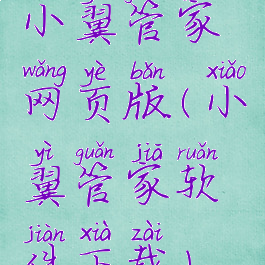 小翼管家
wǎng yè bǎn xiǎo
网页版(小
yì guǎn jiā ruǎn
翼管家软
jiàn xià zài
件下载)